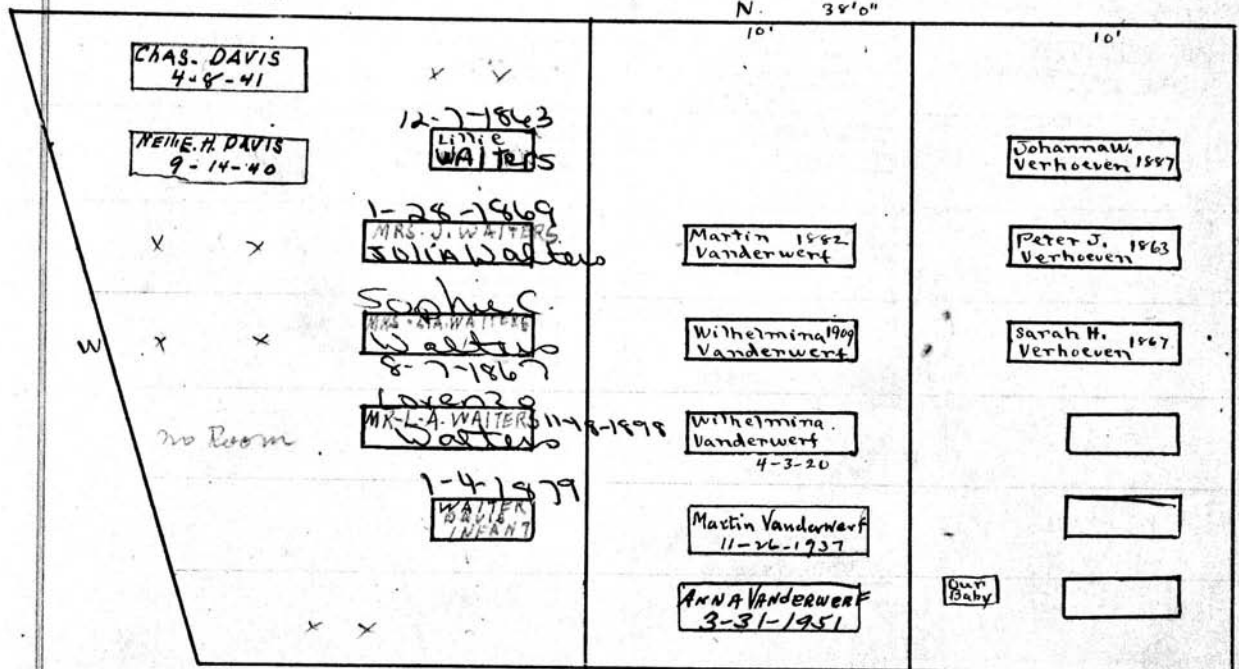 N. 38'0"
10'
10'
W
ChAS. DAVIS
4-8-41
NEllIE. H. DAVIS
9-14-40
x x
x x
x x
no Room
x x
12-7-1863
Lillie
WAlTERS
1-28-1869
MRS. J. WAlTERS.
JULIA Walters
Sophie C.
WAlTERS
Walters
8-7-1867
Lorenzo
MR-L-A. WAlTERS 11-18-1898
Walters
1-4-1879
WAlTER
DAVIS
INFANT
Martin 1882
Vanderwerf
Wilhelmina 1909
Vanderwerf
Wilhelmina.
Vanderwerf
4-3-20
Martin Vanderwerf
11-26-1937
ANNA VANDERWERF
3-31-1951
Johanna W.
Verhoeven 1887
Peter J. 1863
Verhoeven
Sarah H. 1867
Verhoeven
Our
Baby